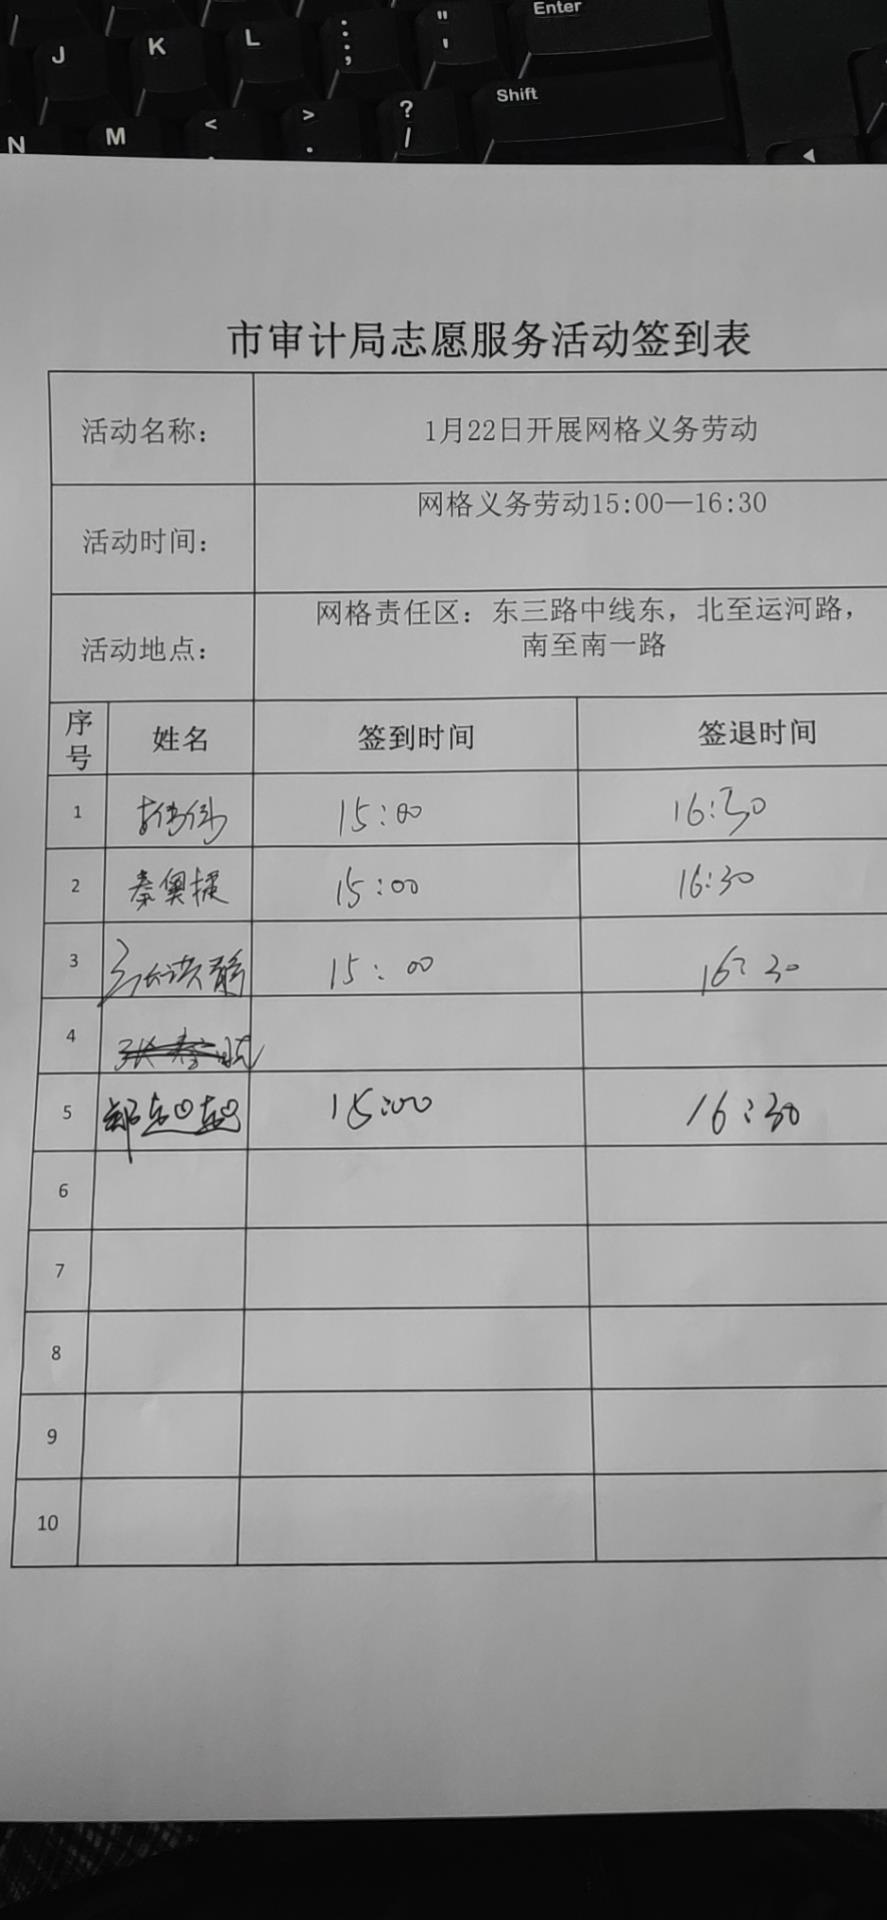 J K L : ; " ' Enter
N M < , > . ? / Shift
市审计局志愿服务活动签到表
活动名称： 1月22日开展网格义务劳动
活动时间： 网格义务劳动15:00—16:30
活动地点： 网格责任区：东三路中线东，北至运河路，
南至南一路
序号 姓名 签到时间 签退时间
1 15:00 16:30
2 秦奥搌 15:00 16:30
3 15:00 16:30
4
5 15:00 16:30
6
7
8
9
10